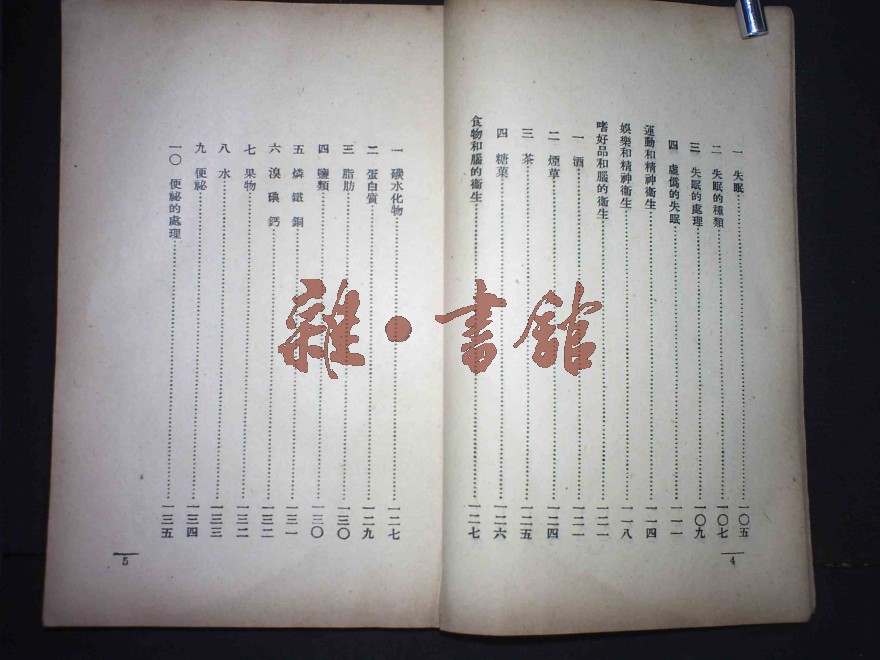 一 失眠 一〇五
二 失眠的種類 一〇七
三 失眠的處理 一〇九
四 虛僞的失眠 一一一
運動和精神衛生 一一四
娛樂和精神衛生 一一八
嗜好品和腦的衛生 一二一
一 酒 一二一
二 煙草 一二四
三 茶 一二五
四 糖菓 一二六
食物和腦的衛生 一二七
4
一 碳水化物 一二七
二 蛋白質 一二九
三 脂肪 一三〇
四 鹽類 一三〇
五 燐 鐵 銅 一三一
六 溴 碘 鈣 一三二
七 果物 一三二
八 水 一三三
九 便祕 一三四
一〇 便祕的處理 一三五
5
雜·書館